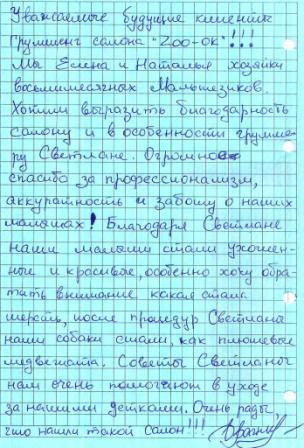 Уважаемые будущие клиенты
Грумминг салона "Zoo-ок"!!!
Мы Елена и Наталья хозяйки
восьмимесячных Мальтезиков.
Хотим выразить благодарность
салону и в особенности грумме-
ру Светлане. Огромное
спасибо за профессионализм,
аккуратность и заботу о наших
малышах! Благодаря Светлане
наши малыши стали ухожен-
ные и красивые, особенно хочу обра-
тить внимание какая стала
шерсть, после процедур Светланы
наши собаки стали, как плюшевые
медвежата. Советы Светланы
нам очень помогают в уходе
за нашими детками. Очень рады,
что нашли такой салон!!!